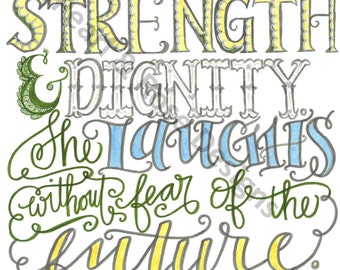 STRENGTH
& DIGNITY.
She laughs
without fear of the
future.